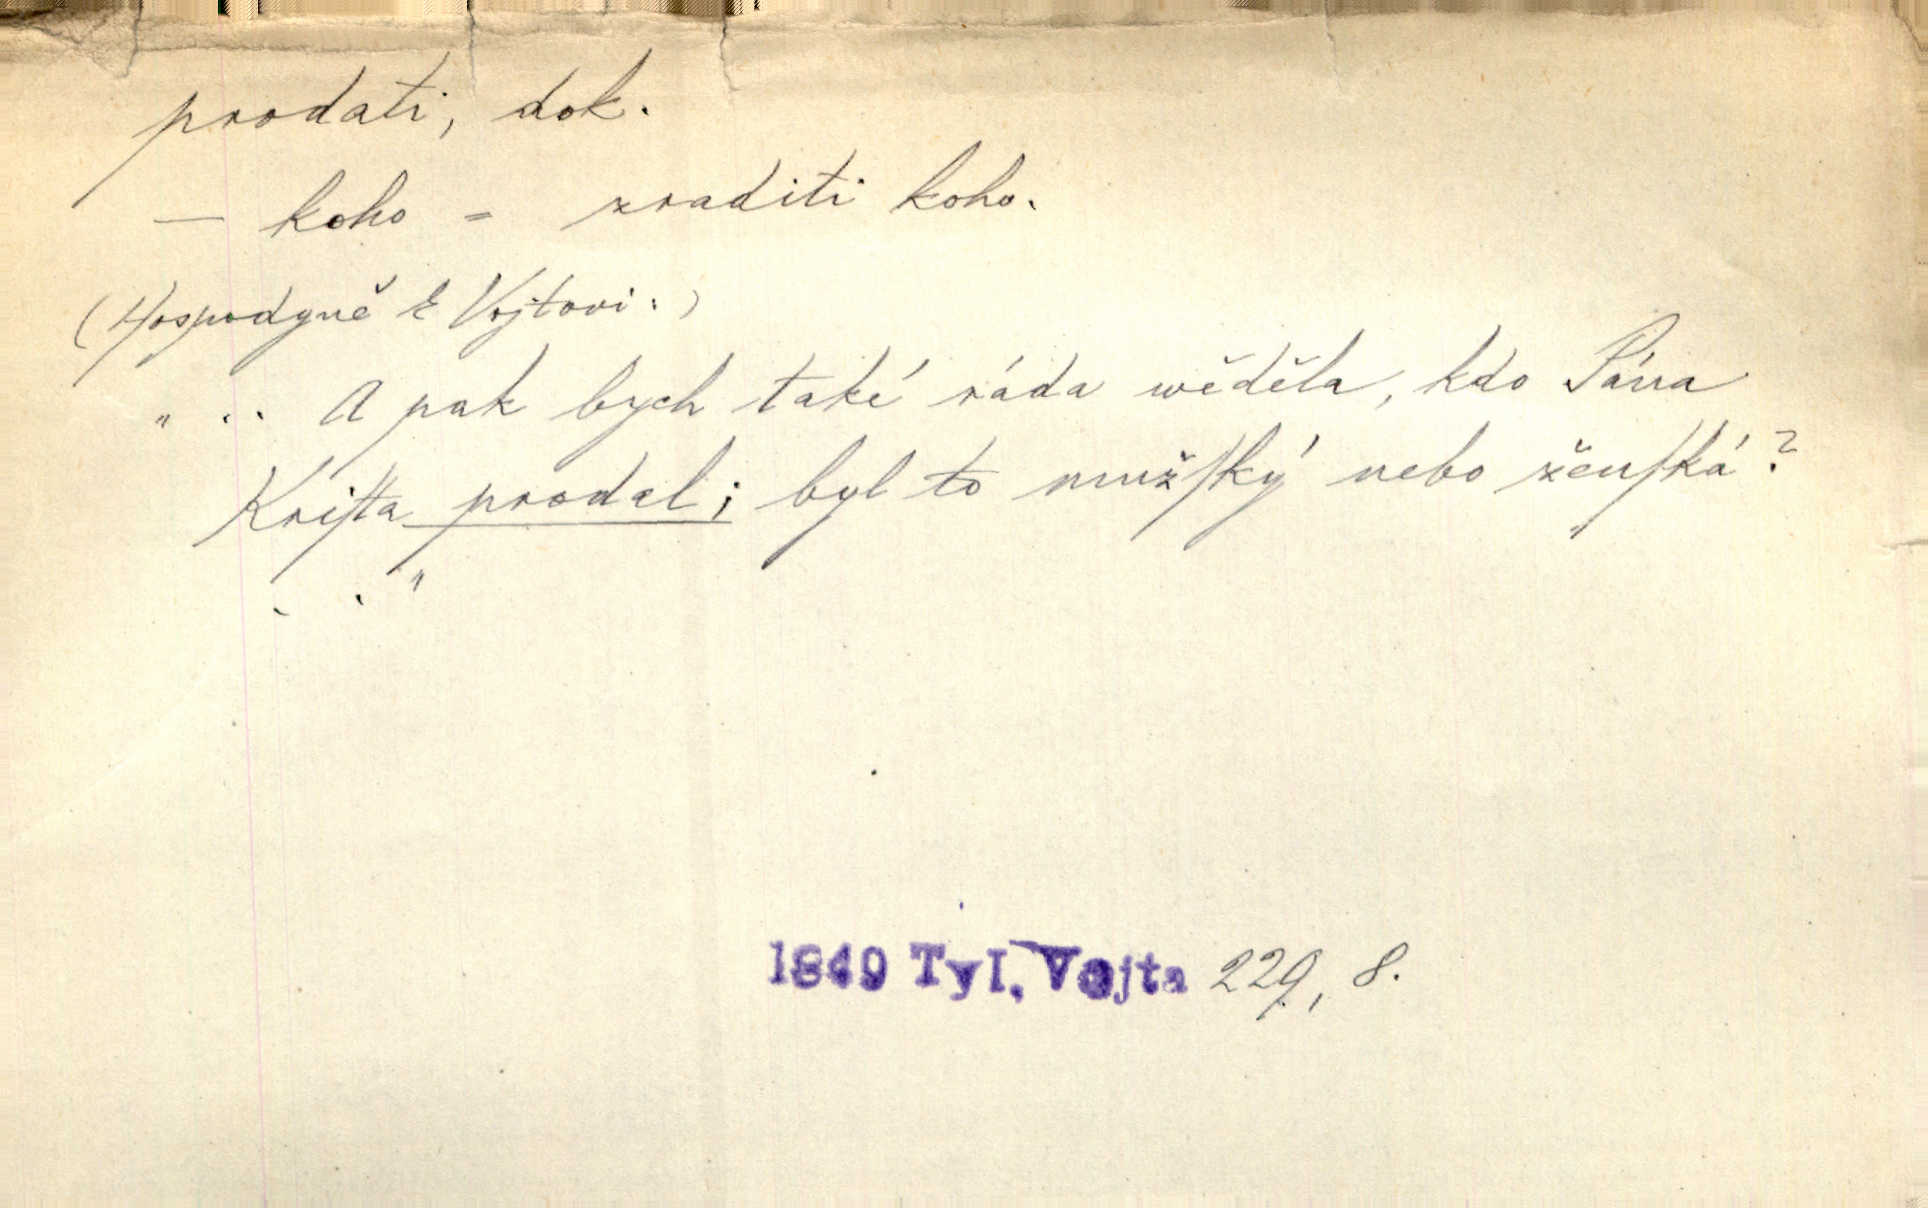 prodati, dok.
— koho = zraditi koho.
(Hospodyně k Vojtovi:)
„ .. A pak bych také ráda wěděla, kdo Pána
Kriſta prodal; byl to mužſký nebo ženſká?
. . "
1849 Tyl, Vojta 229, 8.